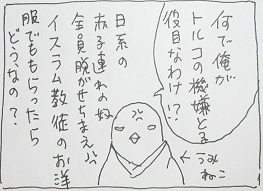 何で俺が
トルコの機嫌とる
役目なわけ!?
日系の
赤子連れの奴
全員脱がせちまえ
イスラム教徒のお洋
服でももらったら
どうなの?
←うみ
ねこ